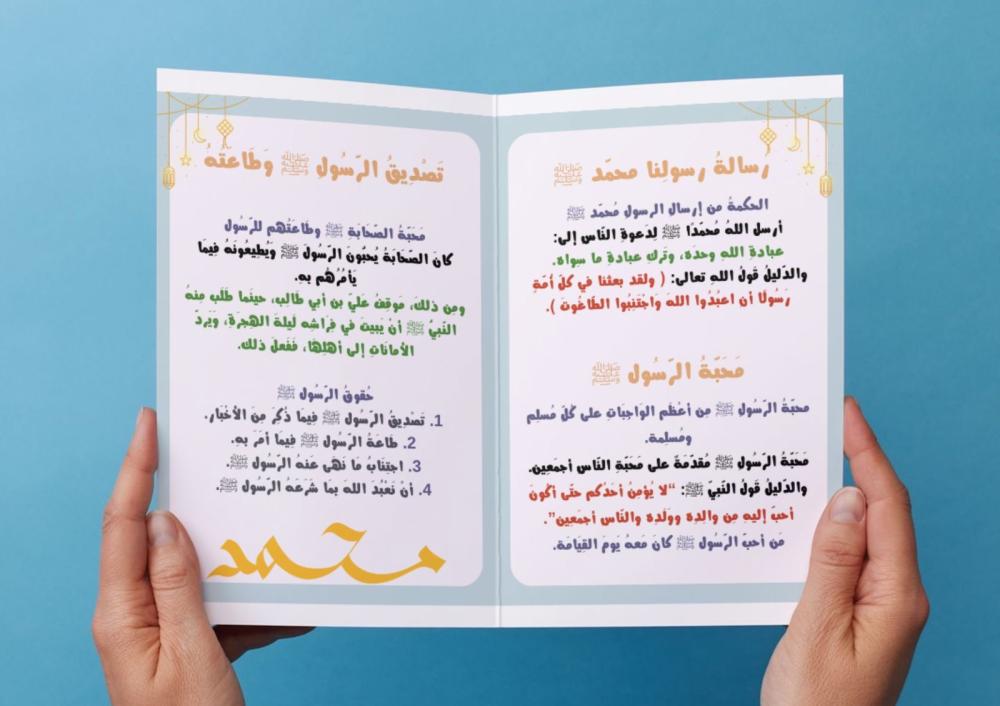 رسالةُ رسولِنا محمّد ﷺ
الحكمةُ من إرسال الرسول مُحمّد ﷺ
أرسل اللهُ مُحمّدًا ﷺ لِدَعوةِ النّاس إلى:
عبادةِ اللهِ وحدَه، وتَركِ عبادةِ ما سِواه.
والدّليلُ قولُ اللهِ تعالى: ( ولقد بعثنا في كلّ أمّةٍ
رَسولًا أن اعبُدُوا اللهَ وَاجْتَنِبُوا الطّاغُوتَ ).
مَحَبّةُ الرّسول ﷺ
محبّةُ الرّسُولِ ﷺ مِن أعظَمِ الوَاجِبَاتِ على كُلّ مُسلِم
ومُسلِمة.
مَحَبّةُ الرّسولِ ﷺ مُقدّمَةٌ على مَحَبّةِ النّاسِ أجمَعِين.
والدّليلُ قَولُ النّبيّ ﷺ: “لا يُؤمنُ أحدُكم حتّى أكُونَ
أحبّ إليهِ مِن والدِه وولَدِه والنّاس أجمَعِين”.
مَن أحبّ الرّسول ﷺ كانَ مَعهُ يَومَ القِيَامَة.
تَصْدِيقُ الرّسُولِ ﷺ وَطَاعتهُ
مَحَبّةُ الصّحَابَةِ ﷺ وطَاعَتُهم للرّسُول
كانَ الصّحَابَةُ يُحبّون الرّسولَ ﷺ وَيُطِيعُونَهُ فِيمَا
يَأمُرُهُم بهِ.
ومِن ذلكَ، مَوقِفُ عليّ بن أبي طَالِب، حينَما طَلَب مِنهُ
النّبيّ ﷺ أنْ يَبيتَ في فِرَاشِه لَيلةَ الهِجرَةِ، وَيَردّ
الأمَانَاتِ إلى أهلِهَا، فَفَعلَ ذلك.
حُقوقُ الرّسُولِ ﷺ
1. تَصْدِيقُ الرّسُولِ ﷺ فِيمَا ذَكِرَ مِنَ الأَخْبَار.
2. طَاعَةُ الرّسُول ﷺ فِيمَا أمَرَ بهِ.
3. اجتِنَابُ مَا نَهَى عَنهُ الرّسُولُ ﷺ.
4. أنْ نَعْبُدَ اللهَ بمَا شَرَعَهُ الرّسُولُ ﷺ.
محمد